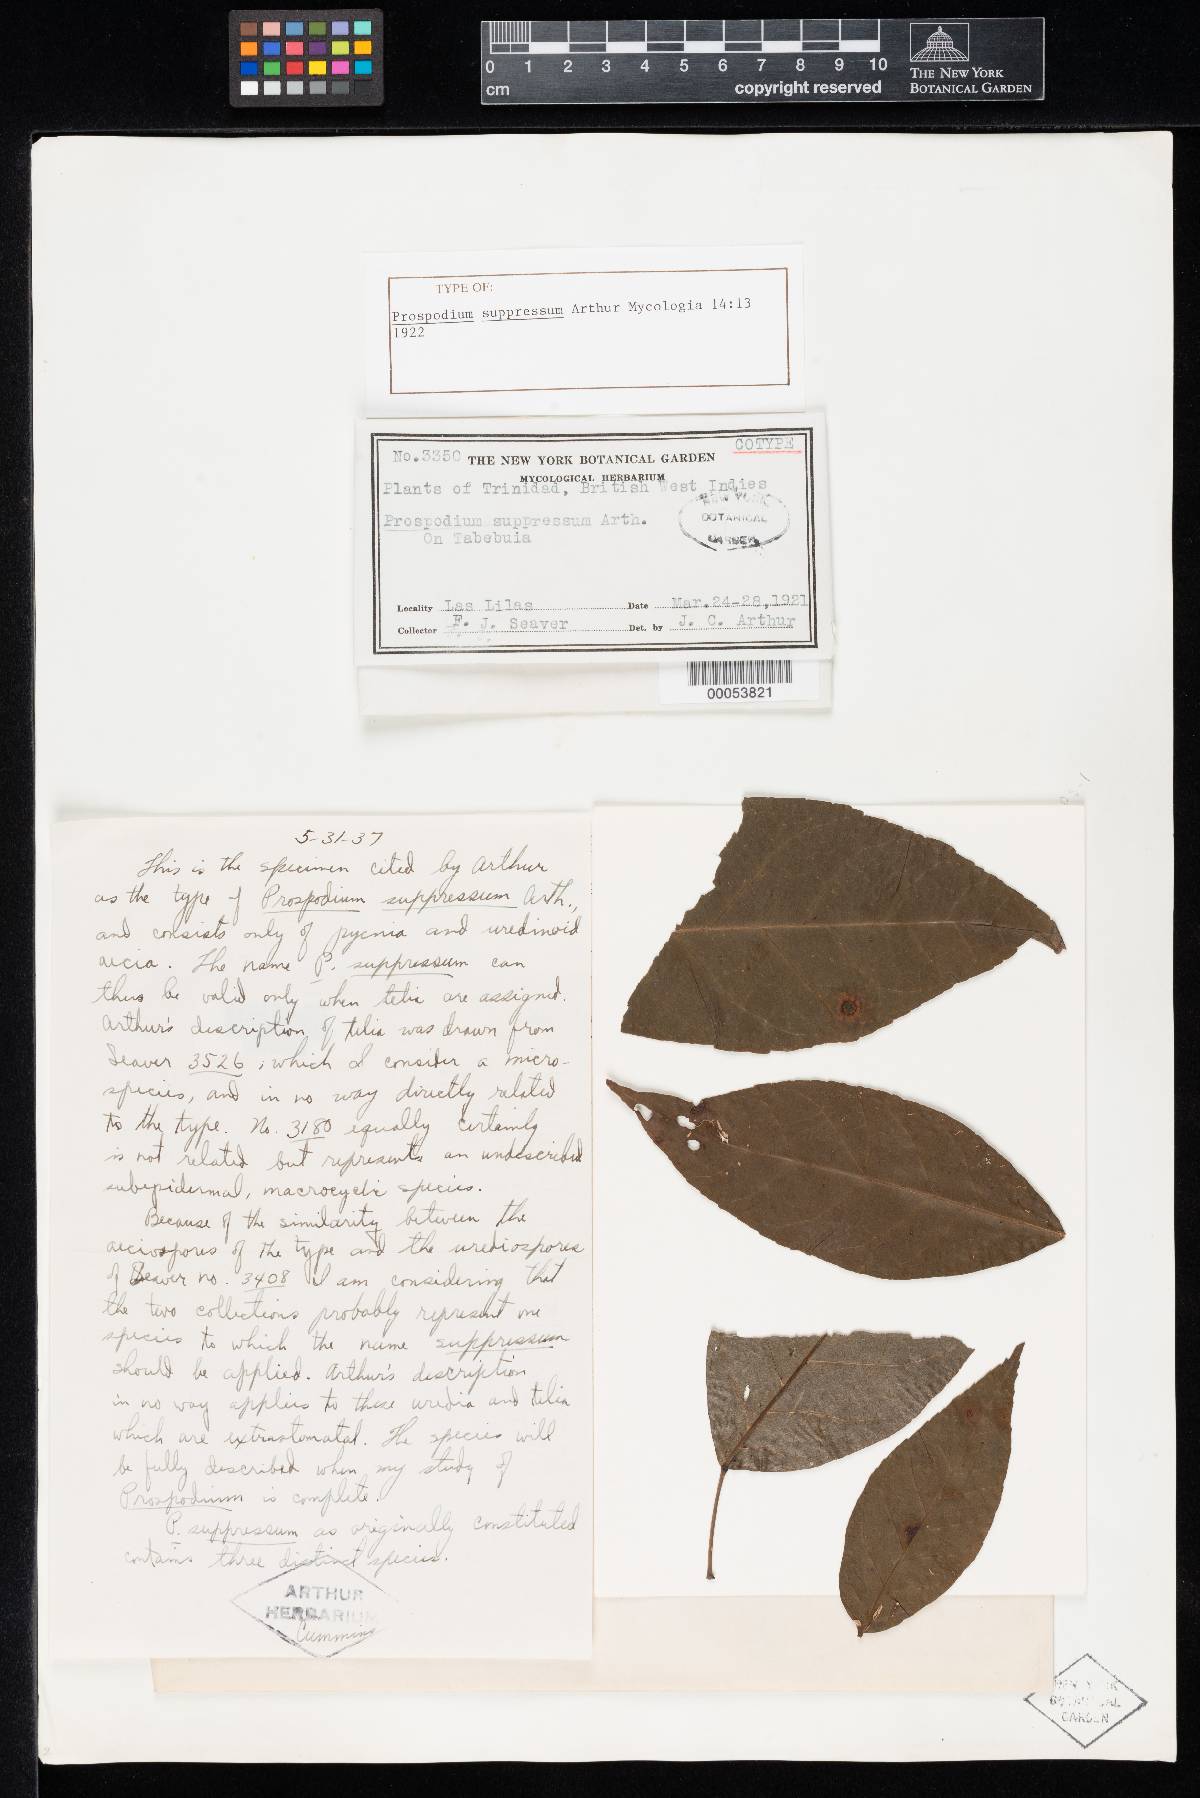 0 1 2 3 4 5 6 7 8 9 10
cm
copyright reserved
THE NEW YORK
BOTANICAL GARDEN
TYPE OF:
Prospodium suppressum Arthur Mycologia 14:13
1922
COTYPE
No.3350 THE NEW YORK BOTANICAL GARDEN
MYCOLOGICAL HERBARIUM
Plants of Trinidad, British West Indies
NEW YORK
BOTANICAL
GARDEN
Prospodium suppressum Arth.
On Tabebuia
Locality Las Lilas Date Mar.24-28,1921
Collector F. J. Seaver Det. by J. C. Arthur
00053821
5-31-37
This is the specimen cited by Arthur
as the type of Prospodium suppressum Arth.,
and consists only of pycnia and uredinoid
aecia. The name P. suppressum can
thus be valid only when telia are assigned.
Arthur's description of telia was drawn from
Seaver 3526, which I consider a micro-
species, and in no way directly related
to the type. No. 3180 equally certainly
is not related but represents an undescribed
subepidermal, macrocyclic species.
Because of the similarity between the
aeciospores of the type and the urediospores
of Seaver no. 3408 I am considering that
the two collections probably represent one
species to which the name suppressum
should be applied. Arthur's description
in no way applies to these uredia and telia
which are extrastomatal. The species will
be fully described when my study of
Prospodium is complete.
P. suppressum as originally constituted
contains three distinct species.
ARTHUR
HERBARIUM
Cummins
NEW YORK
BOTANICAL
GARDEN